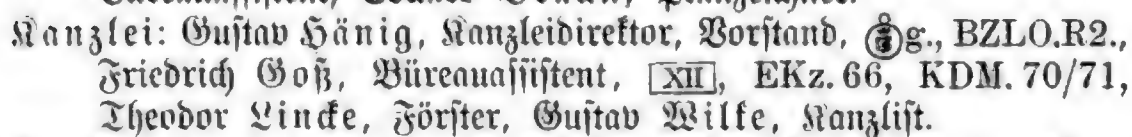 Kanzlei: Gustav Hänig, Kanzleidirektor, Vorstand, g., BZLO.R2.,
Friedrich Goß, Büreauassistent, XII, EKz. 66, KDM. 70/71,
Theodor Lincke, Förster, Gustav Wilke, Kanzlist.